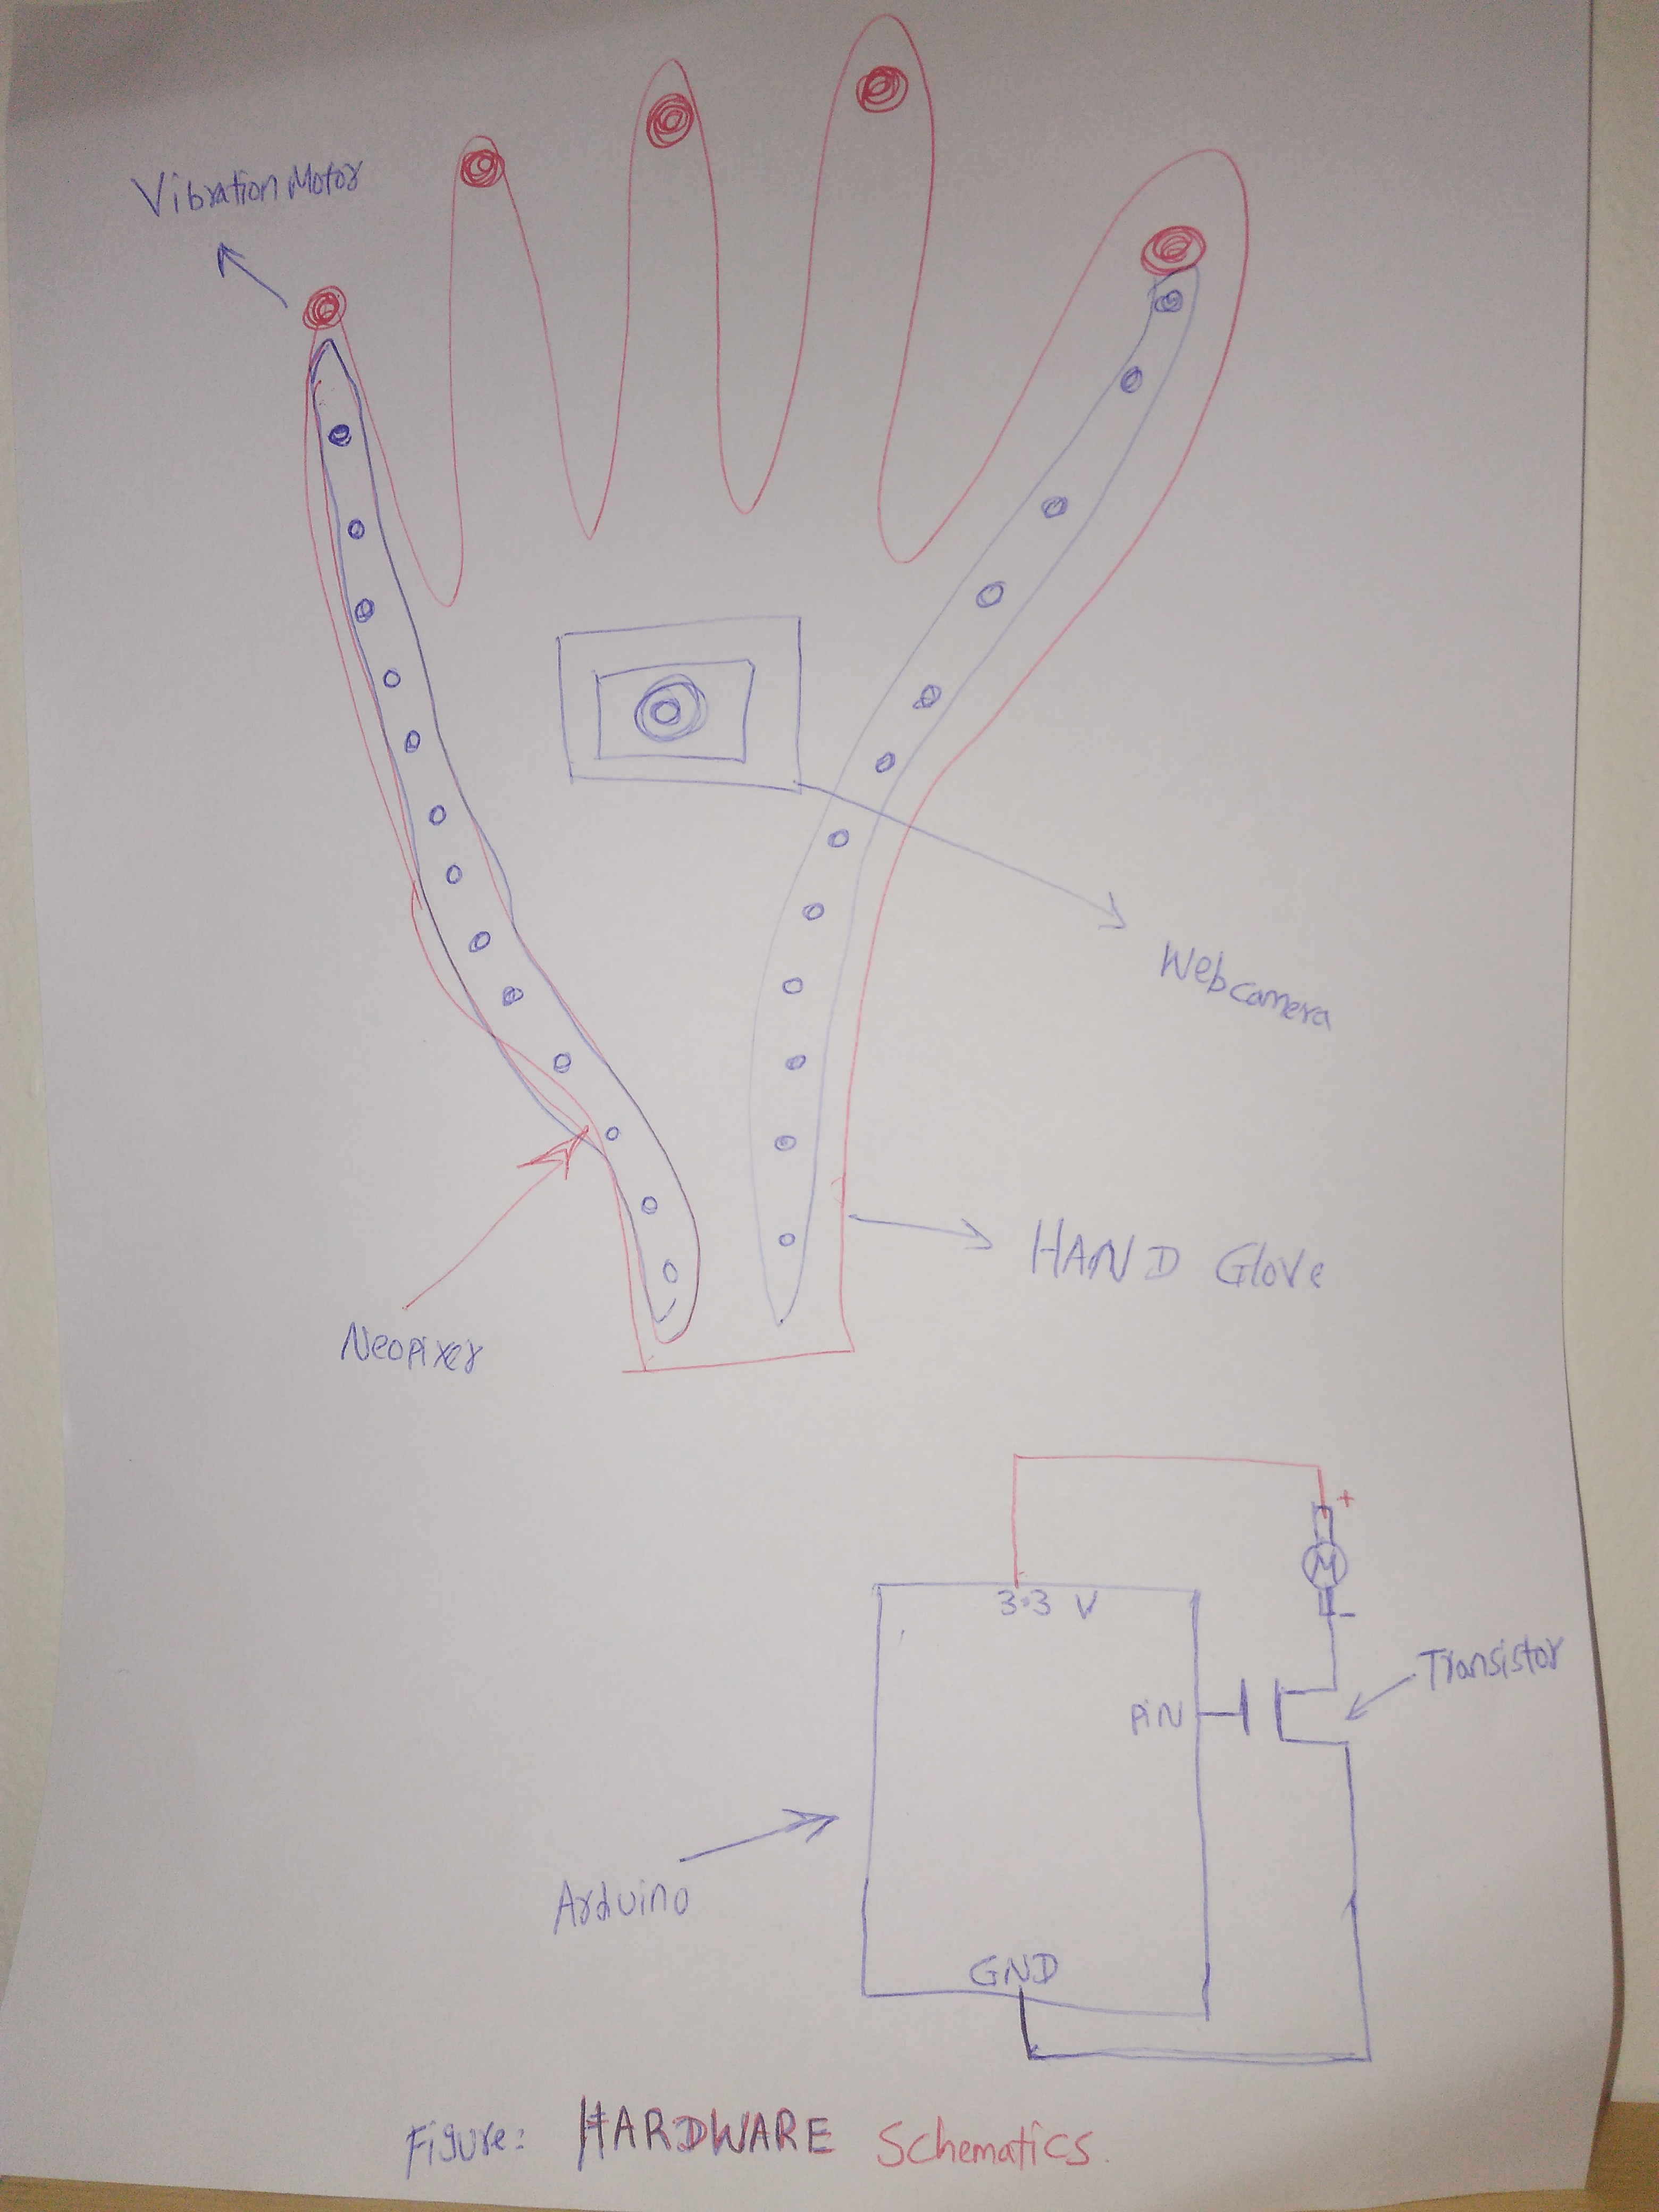 Vibration Motor
Web camera
HAND Glove
Neopixer
+
M
3.3 V
-
Transistor
PiN
Arduino
GND
Figure: HARDWARE Schematics.